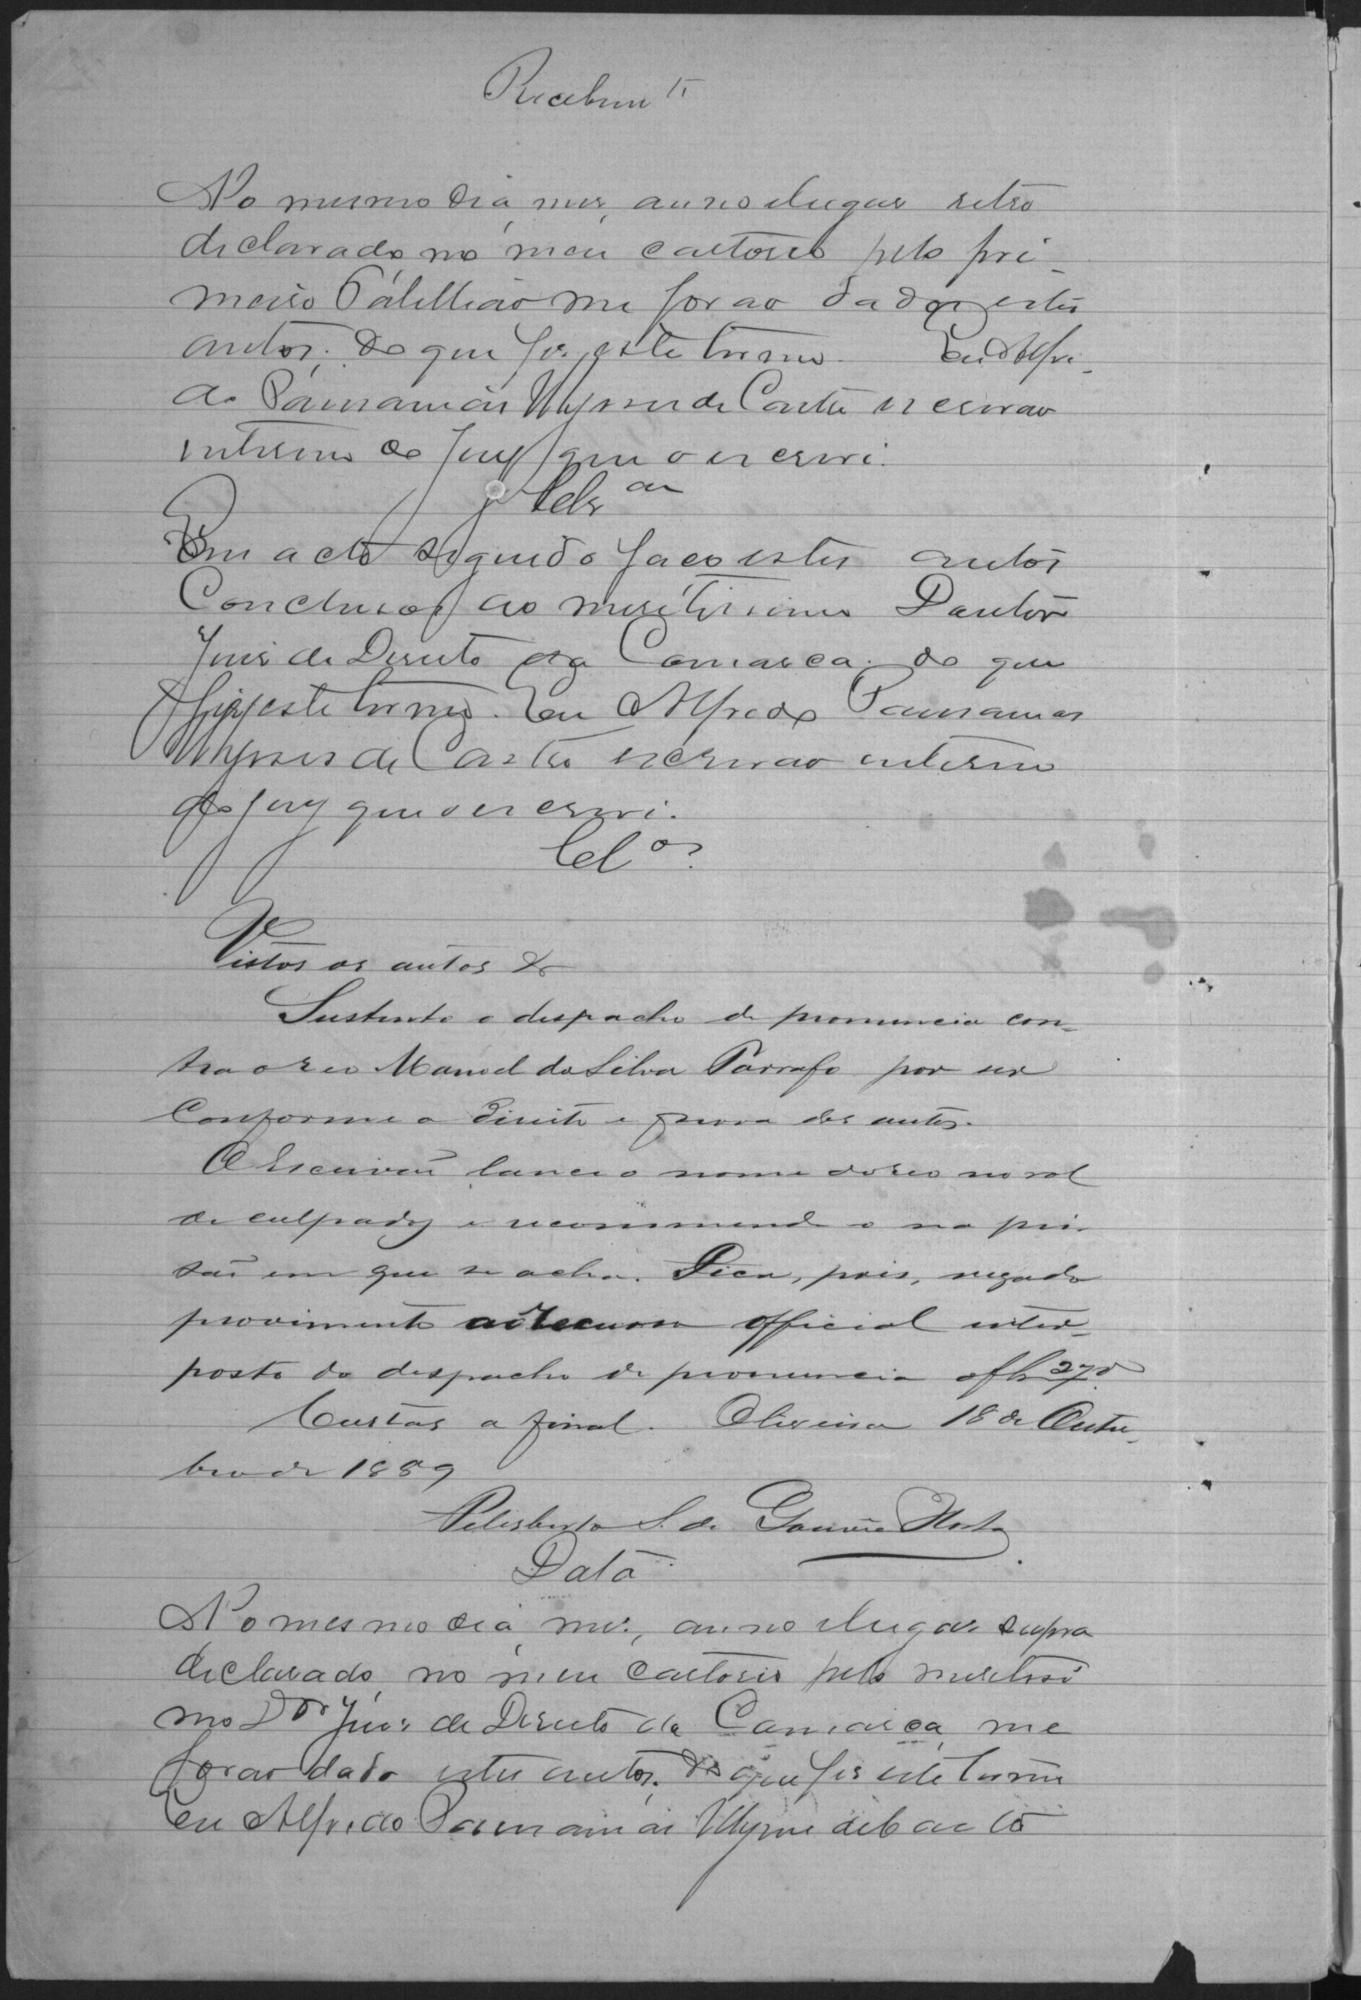 Recebim.to
No mesmo dia, mes, anno e lugar retro
declarado no meu cartorio pelo pri-
meiro Tabellião me forão dados estes
autos; do que fiz este termo. Eu Alfre-
do Ulysses de Castro escrivão
interino do Jury que o escrevi.
Em acto seguido faço estes autos
Conclusos ao meretissimo Doutor
Juis de Direito da Comarca; do que
fiz este termo. Eu Alfredo
Ulysses de Castro escrivão interino
do Jury que o escrevi.
Cl.os
Vistos os autos &
Sustento o despacho de pronuncia con-
tra o reo Manoel da Silva Parrafo por ser
Conforme o direito e prova dos autos.
O Escrivão lance o nome do reo no rol
de culpados e recommende o na pri-
são em que se acha. Fica, pois, negado
provimento ao recurso official inter-
posto do despacho de pronuncia a fls 27 v
Custas a final. Oliveira 18 de Outu-
bro de 1889
Felisberto S. de Gouvêa Horta
Data
No mesmo dia, mes, anno e lugar supra
declarado, no meu cartorio pelo meretissi
mo Dor Juis de Direito da Comarca, me
forão dado estes autos; do que fis este termo
Eu Alfredo Ulysses de Castro